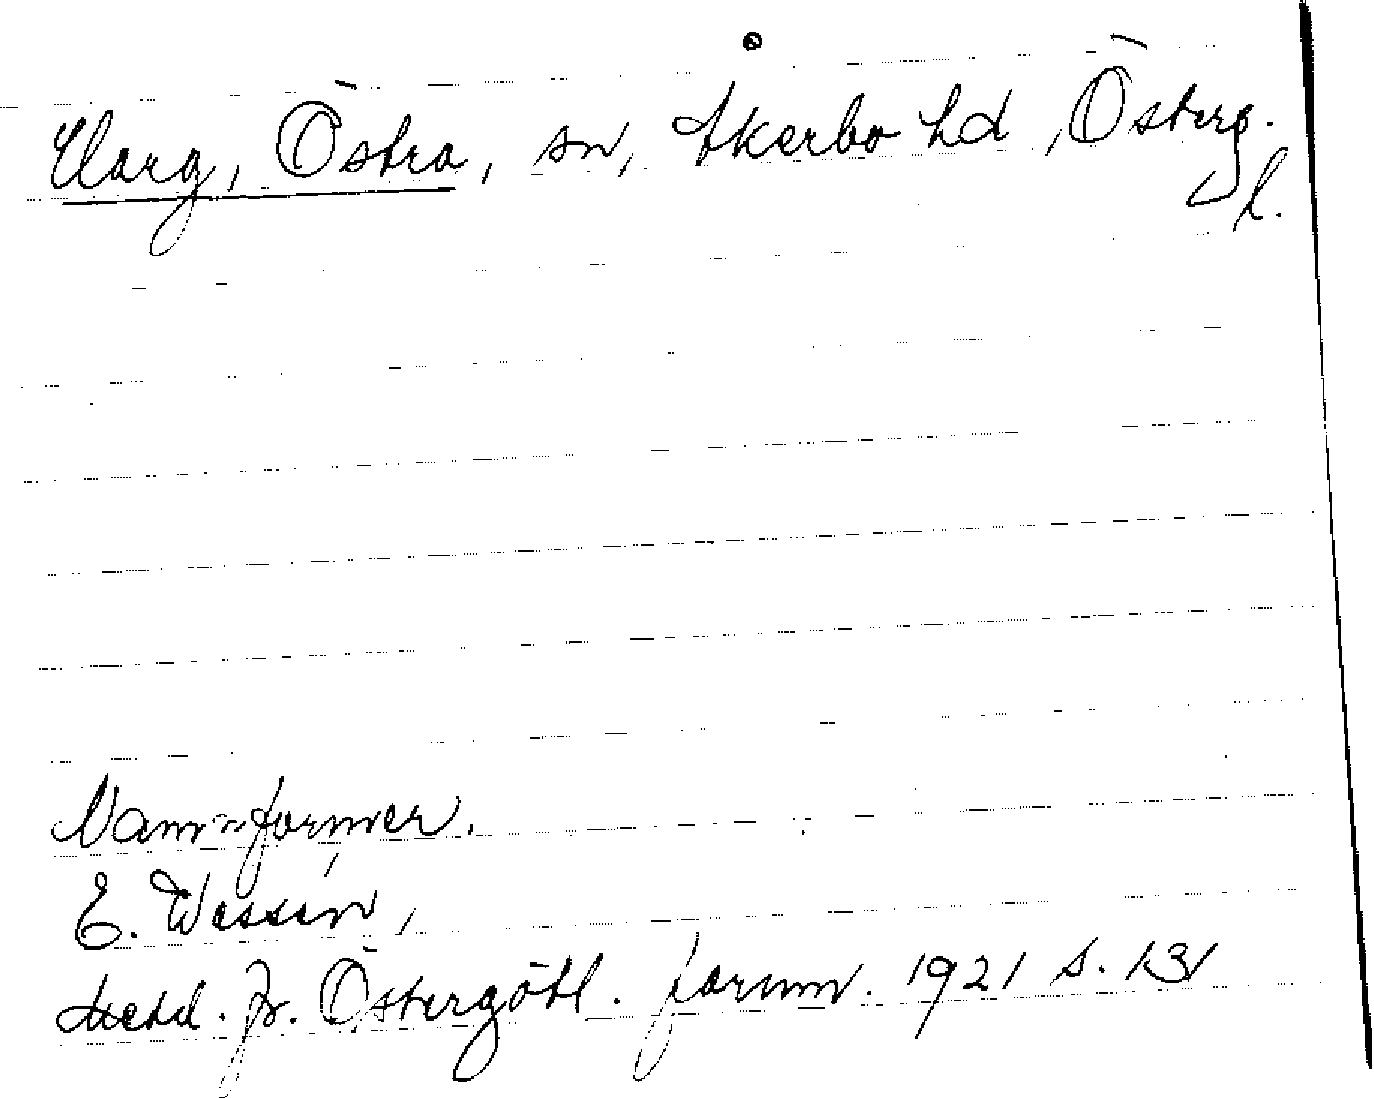 Harg, Östra, sn, Åkerbo hd, Österg.
l.
Namnformer.
E. Wessén,
Medd. fr. Östergötl. fornm. 1921 s. 131